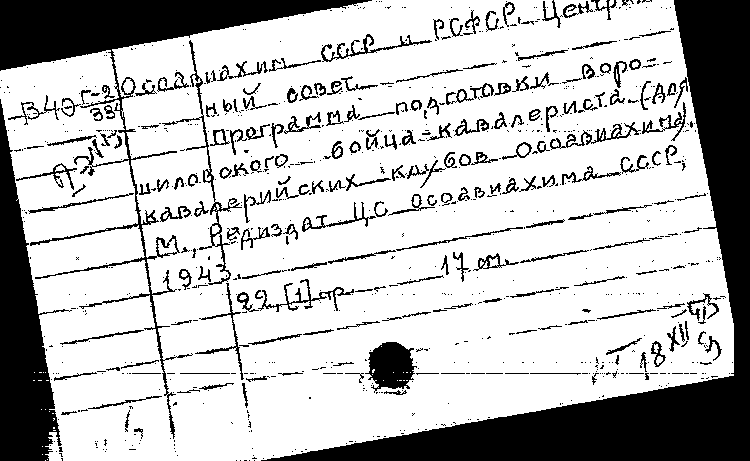 В40 Г-2/334 Осоавиахим СССР и РСФСР. Централь-
ный совет.
Программа подготовки воро=
шиловского бойца=кавалериста. (Для
кавалерийских клубов Осоавиахима).
М., Редиздат ЦС Осоавиахима СССР,
1943.
22, [1] стр. 17 см.
18 XII 43